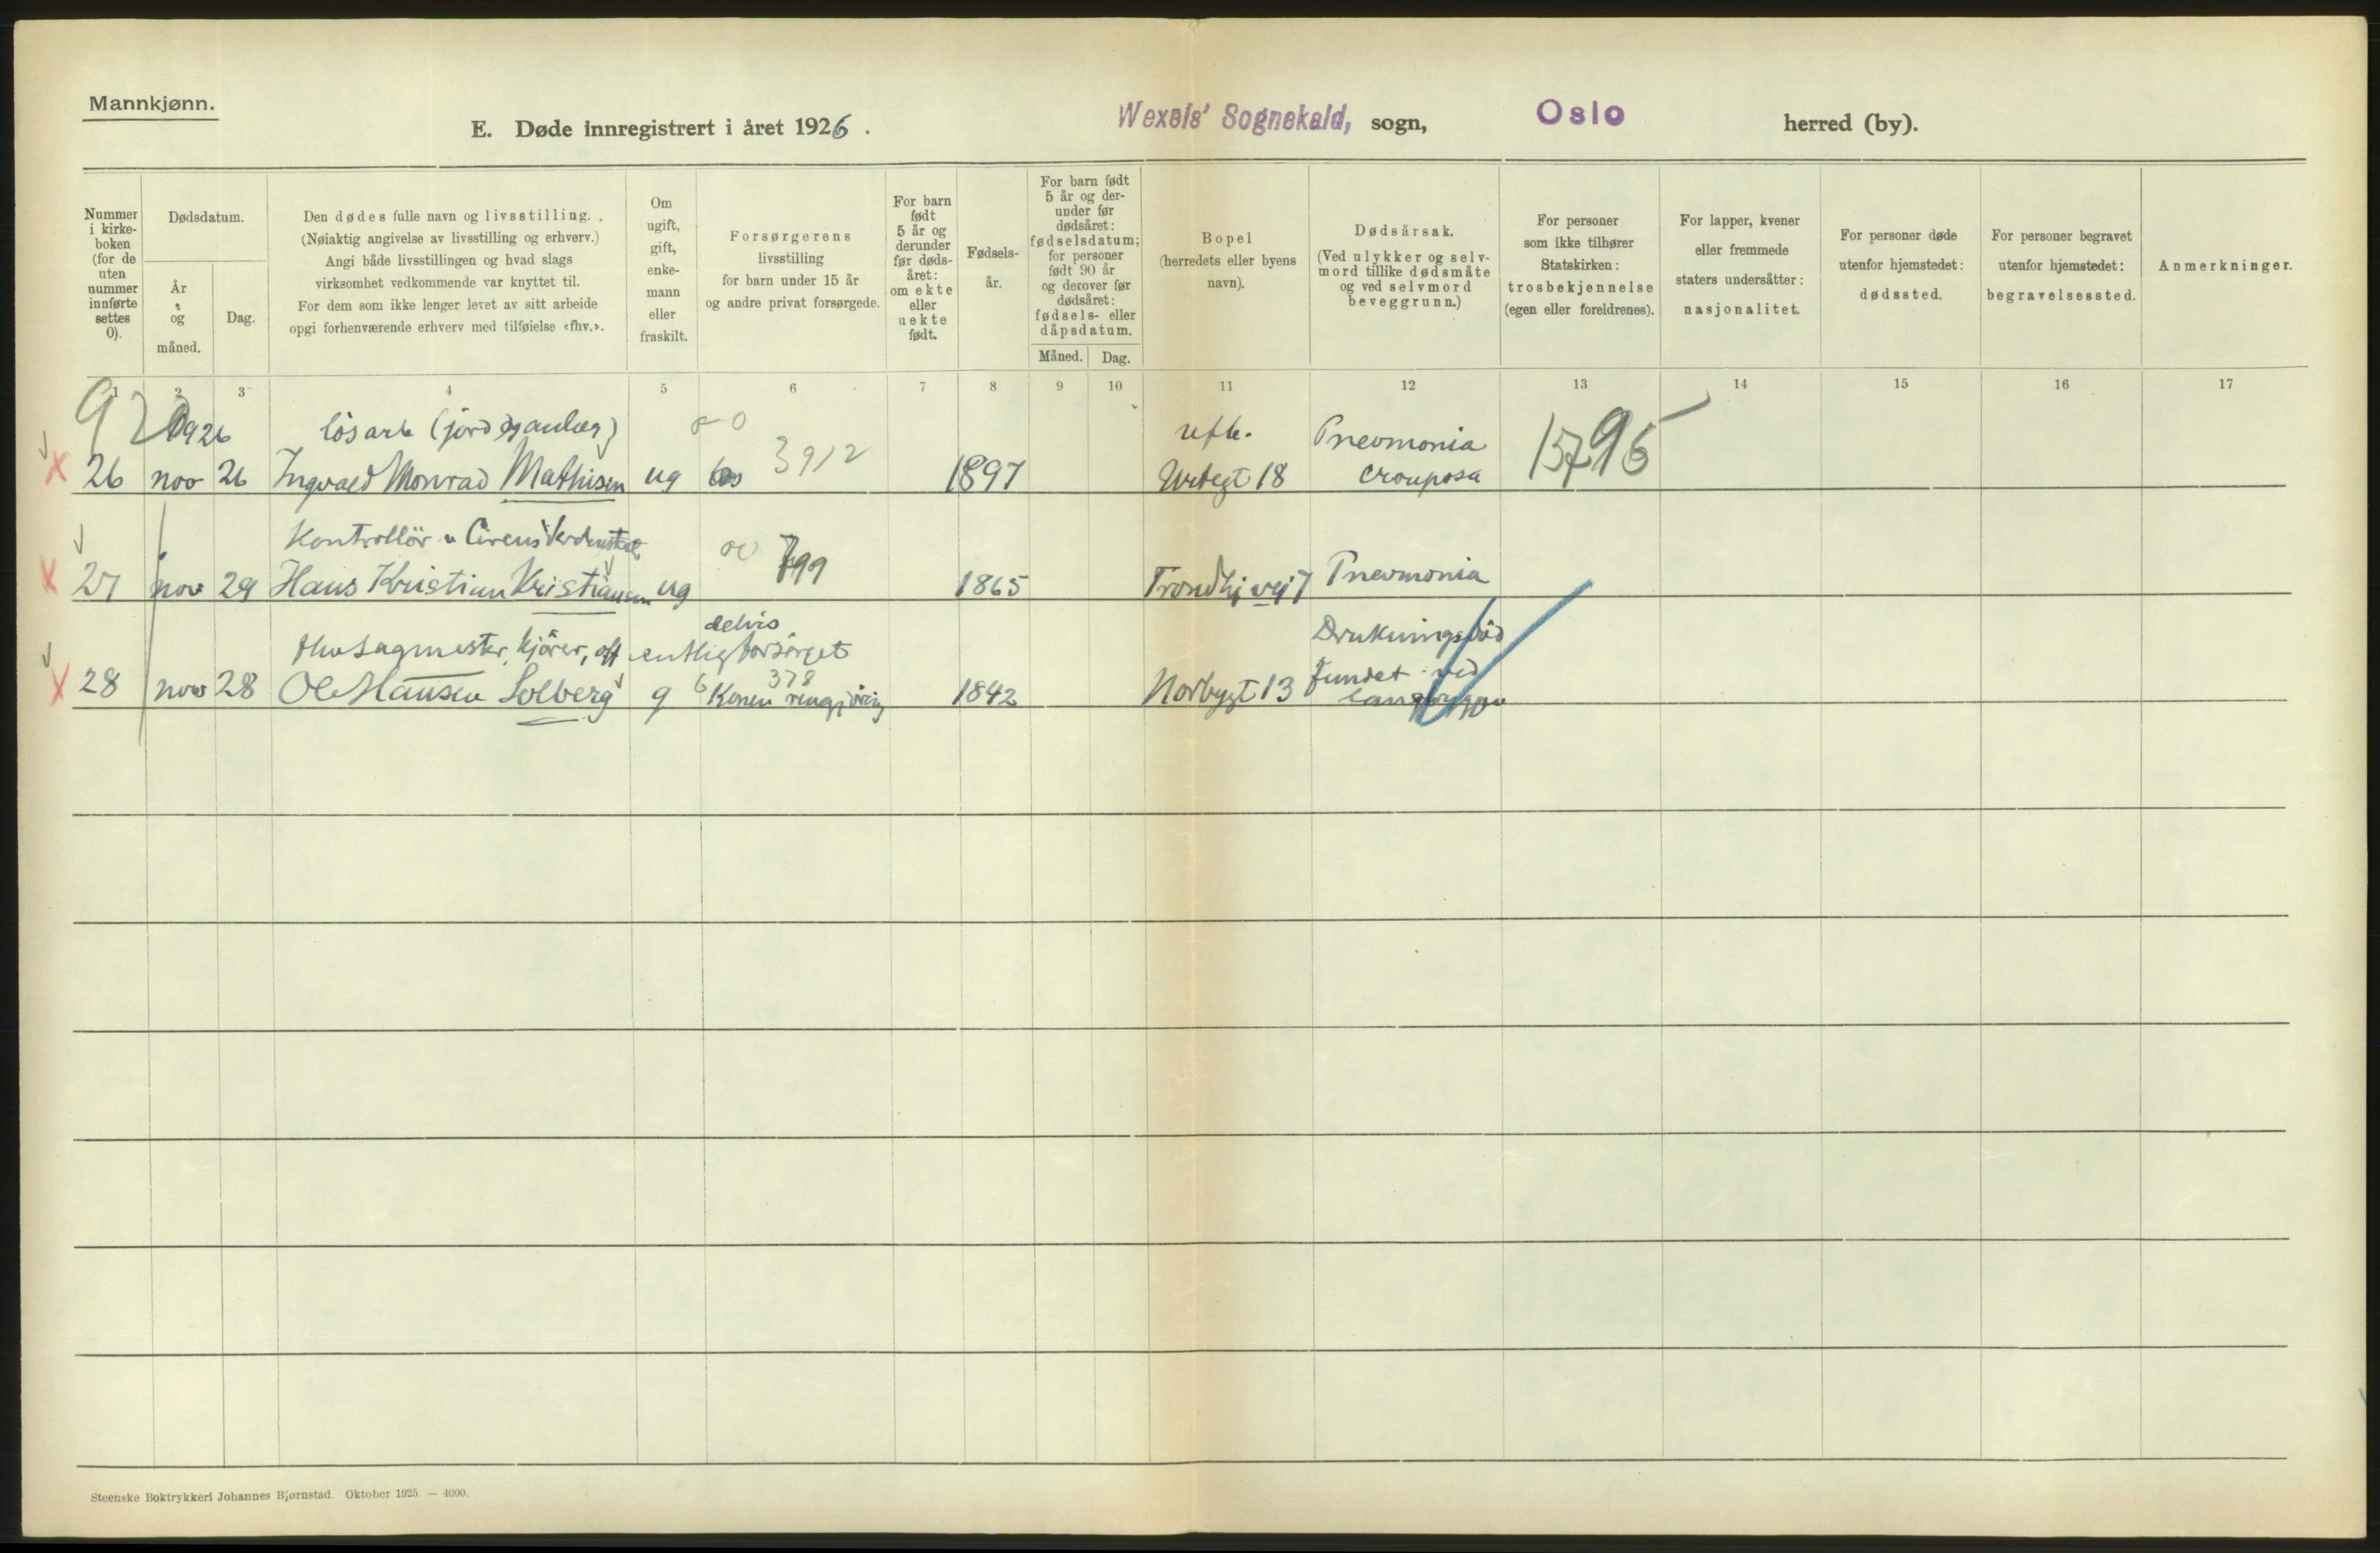 Mannkjønn.
E. Døde innregistrert i året 1926.
Wexels' Sognekald, sogn,
Oslo
herred (by).
Nummer
i kirke-
boken
(for de
uten
nummer
innførte
settes
0).
Dødsdatum.
År
og
måned.
Dag.
Den dødes fulle navn og livsstilling.
(Nøiaktig angivelse av livsstilling og erhverv.)
Angi både livsstillingen og hvad slags
virksomhet vedkommende var knyttet til.
For dem som ikke lenger levet av sitt arbeide
opgi forhenværende erhverv med tilføielse «fhv.».
Om
ugift,
gift,
enke-
mann
eller
fraskilt.
Forsørgerens
livsstilling
for barn under 15 år
og andre privat forsørgede.
For barn
født
5 år og
derunder
før døds-
året:
om ekte
eller
uekte
født.
Fødsels-
år.
For barn født
5 år og der-
under før
dødsåret:
fødselsdatum;
for personer
født 90 år
og derover før
dødsåret:
fødsels- eller
dåpsdatum.
Måned. Dag.
Bopel
(herredets eller byens
navn).
Dødsårsak.
(Ved ulykker og selv-
mord tillike dødsmåte
og ved selvmord
beveggrunn.)
For personer
som ikke tilhører
Statskirken:
trosbekjennelse
(egen eller foreldrenes).
For lapper, kvener
eller fremmede
staters undersåtter:
nasjonalitet.
For personer døde
utenfor hjemstedet:
dødssted.
For personer begravet
utenfor hjemstedet:
begravelsessted.
Anmerkninger.
1 2 3 4 5 6 7 8 9 10 11 12 13 14 15 16 17
1926 løsarb (jord Pneumonia
26 nov 26 Ingvald Monrad Mathisen ug 3912 1897 Urtegt 18 crouposa 15795
Kontrollör Circus
27 nov 29 Hans Kristian Kristiansen ug 799 1865 Trondhj vej 7 Pneumonia
delvis
kjörer, offentlig forsörget Drukningsdöd
378 fundet ved
28 nov 28 Ole Hansen Solberg g Konen rengjöring 1842 Norbygt 13 langbryggen
Steenske Boktrykkeri Johannes Bjørnstad. Oktober 1925. — 4000.